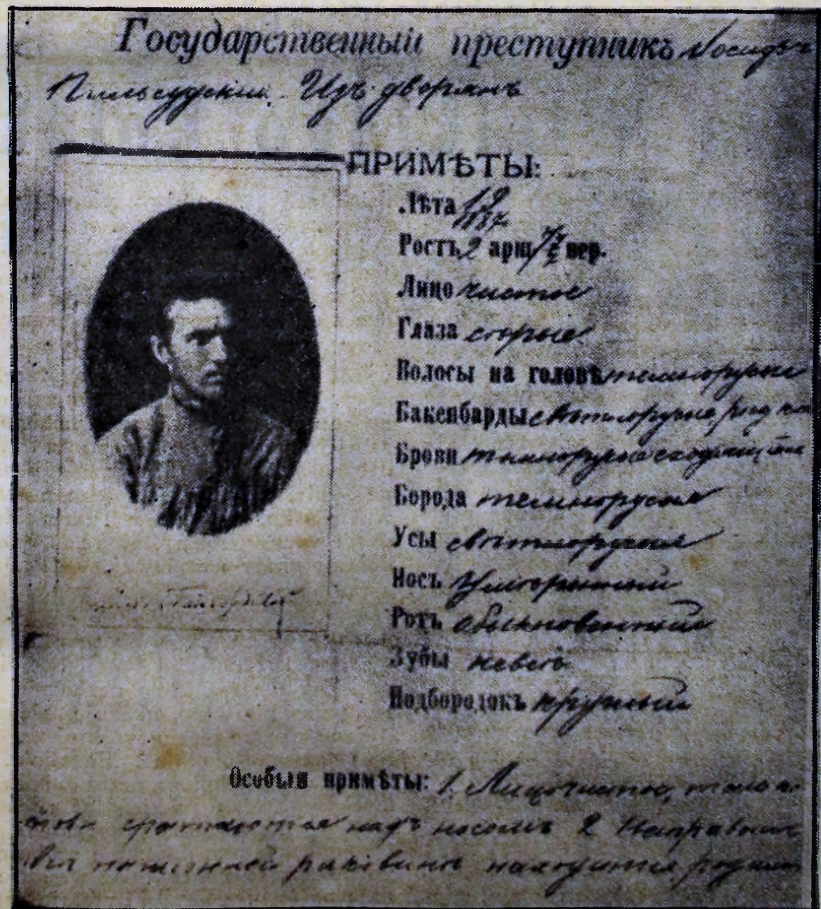 Государственный преступникъ Іосифъ
Пильсудскій. Изъ дворянъ
ПРИМѢТЫ:
Лѣта 19
1887
Ростъ 2 арш 7½ вер.
Лицо чистое
Глаза сѣрые
Волосы на головѣ темнорусые
Бакенбарды свѣтлорусые,
Брови темнорусые
Борода темнорусая
Усы свѣтлорусые
Носъ умѣренный
Ротъ обыкновенный
Зубы не всѣ
Подбородокъ круглый
Особыя примѣты: 1. Лицо чистое,
надъ носомъ 2
раковины находится